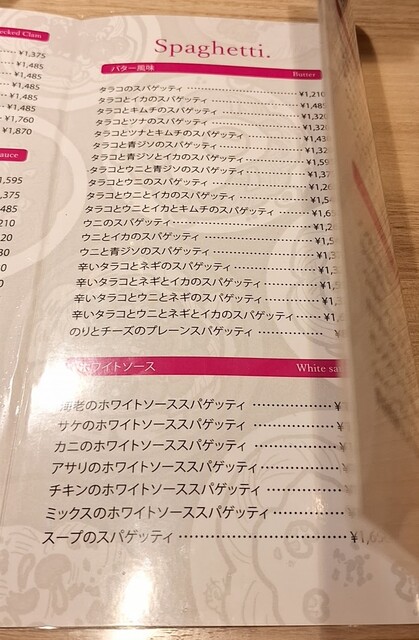 ecked Clam
¥1,375
¥1,485
¥1,485
¥1,485
¥1,485
¥1,485
¥1,760
¥1,870
auce
1,595
,375
485
210
20
80
0
0
Spaghetti.
バター風味 Butter
タラコのスパゲッティ ¥1,210
タラコとイカのスパゲッティ ¥1,485
タラコとキムチのスパゲッティ ¥1,320
タラコとツナのスパゲッティ ¥1,320
タラコとツナとキムチのスパゲッティ ¥1,43
タラコと青ジソのスパゲッティ ¥1,32
タラコと青ジソとイカのスパゲッティ ¥1,59
タラコとウニと青ジソのスパゲッティ ¥1,37
タラコとウニのスパゲッティ ¥1,26
タラコとウニとイカのスパゲッティ ¥1,5
タラコとウニとイカとキムチのスパゲッティ ¥1,6
ウニのスパゲッティ ¥1,2
ウニとイカのスパゲッティ ¥1,5
ウニと青ジソのスパゲッティ ¥1,3
辛いタラコとネギのスパゲッティ ¥1,3
辛いタラコとネギとイカのスパゲッティ ¥1,
辛いタラコとウニとネギのスパゲッティ ¥1,
辛いタラコとウニとネギとイカのスパゲッティ ¥1,
のりとチーズのプレーンスパゲッティ ¥
ホワイトソース White sau
海老のホワイトソーススパゲッティ ¥
サケのホワイトソーススパゲッティ ¥
カニのホワイトソーススパゲッティ ¥
アサリのホワイトソーススパゲッティ ¥
チキンのホワイトソーススパゲッティ ¥
ミックスのホワイトソーススパゲッティ ¥
スープのスパゲッティ ¥1,6